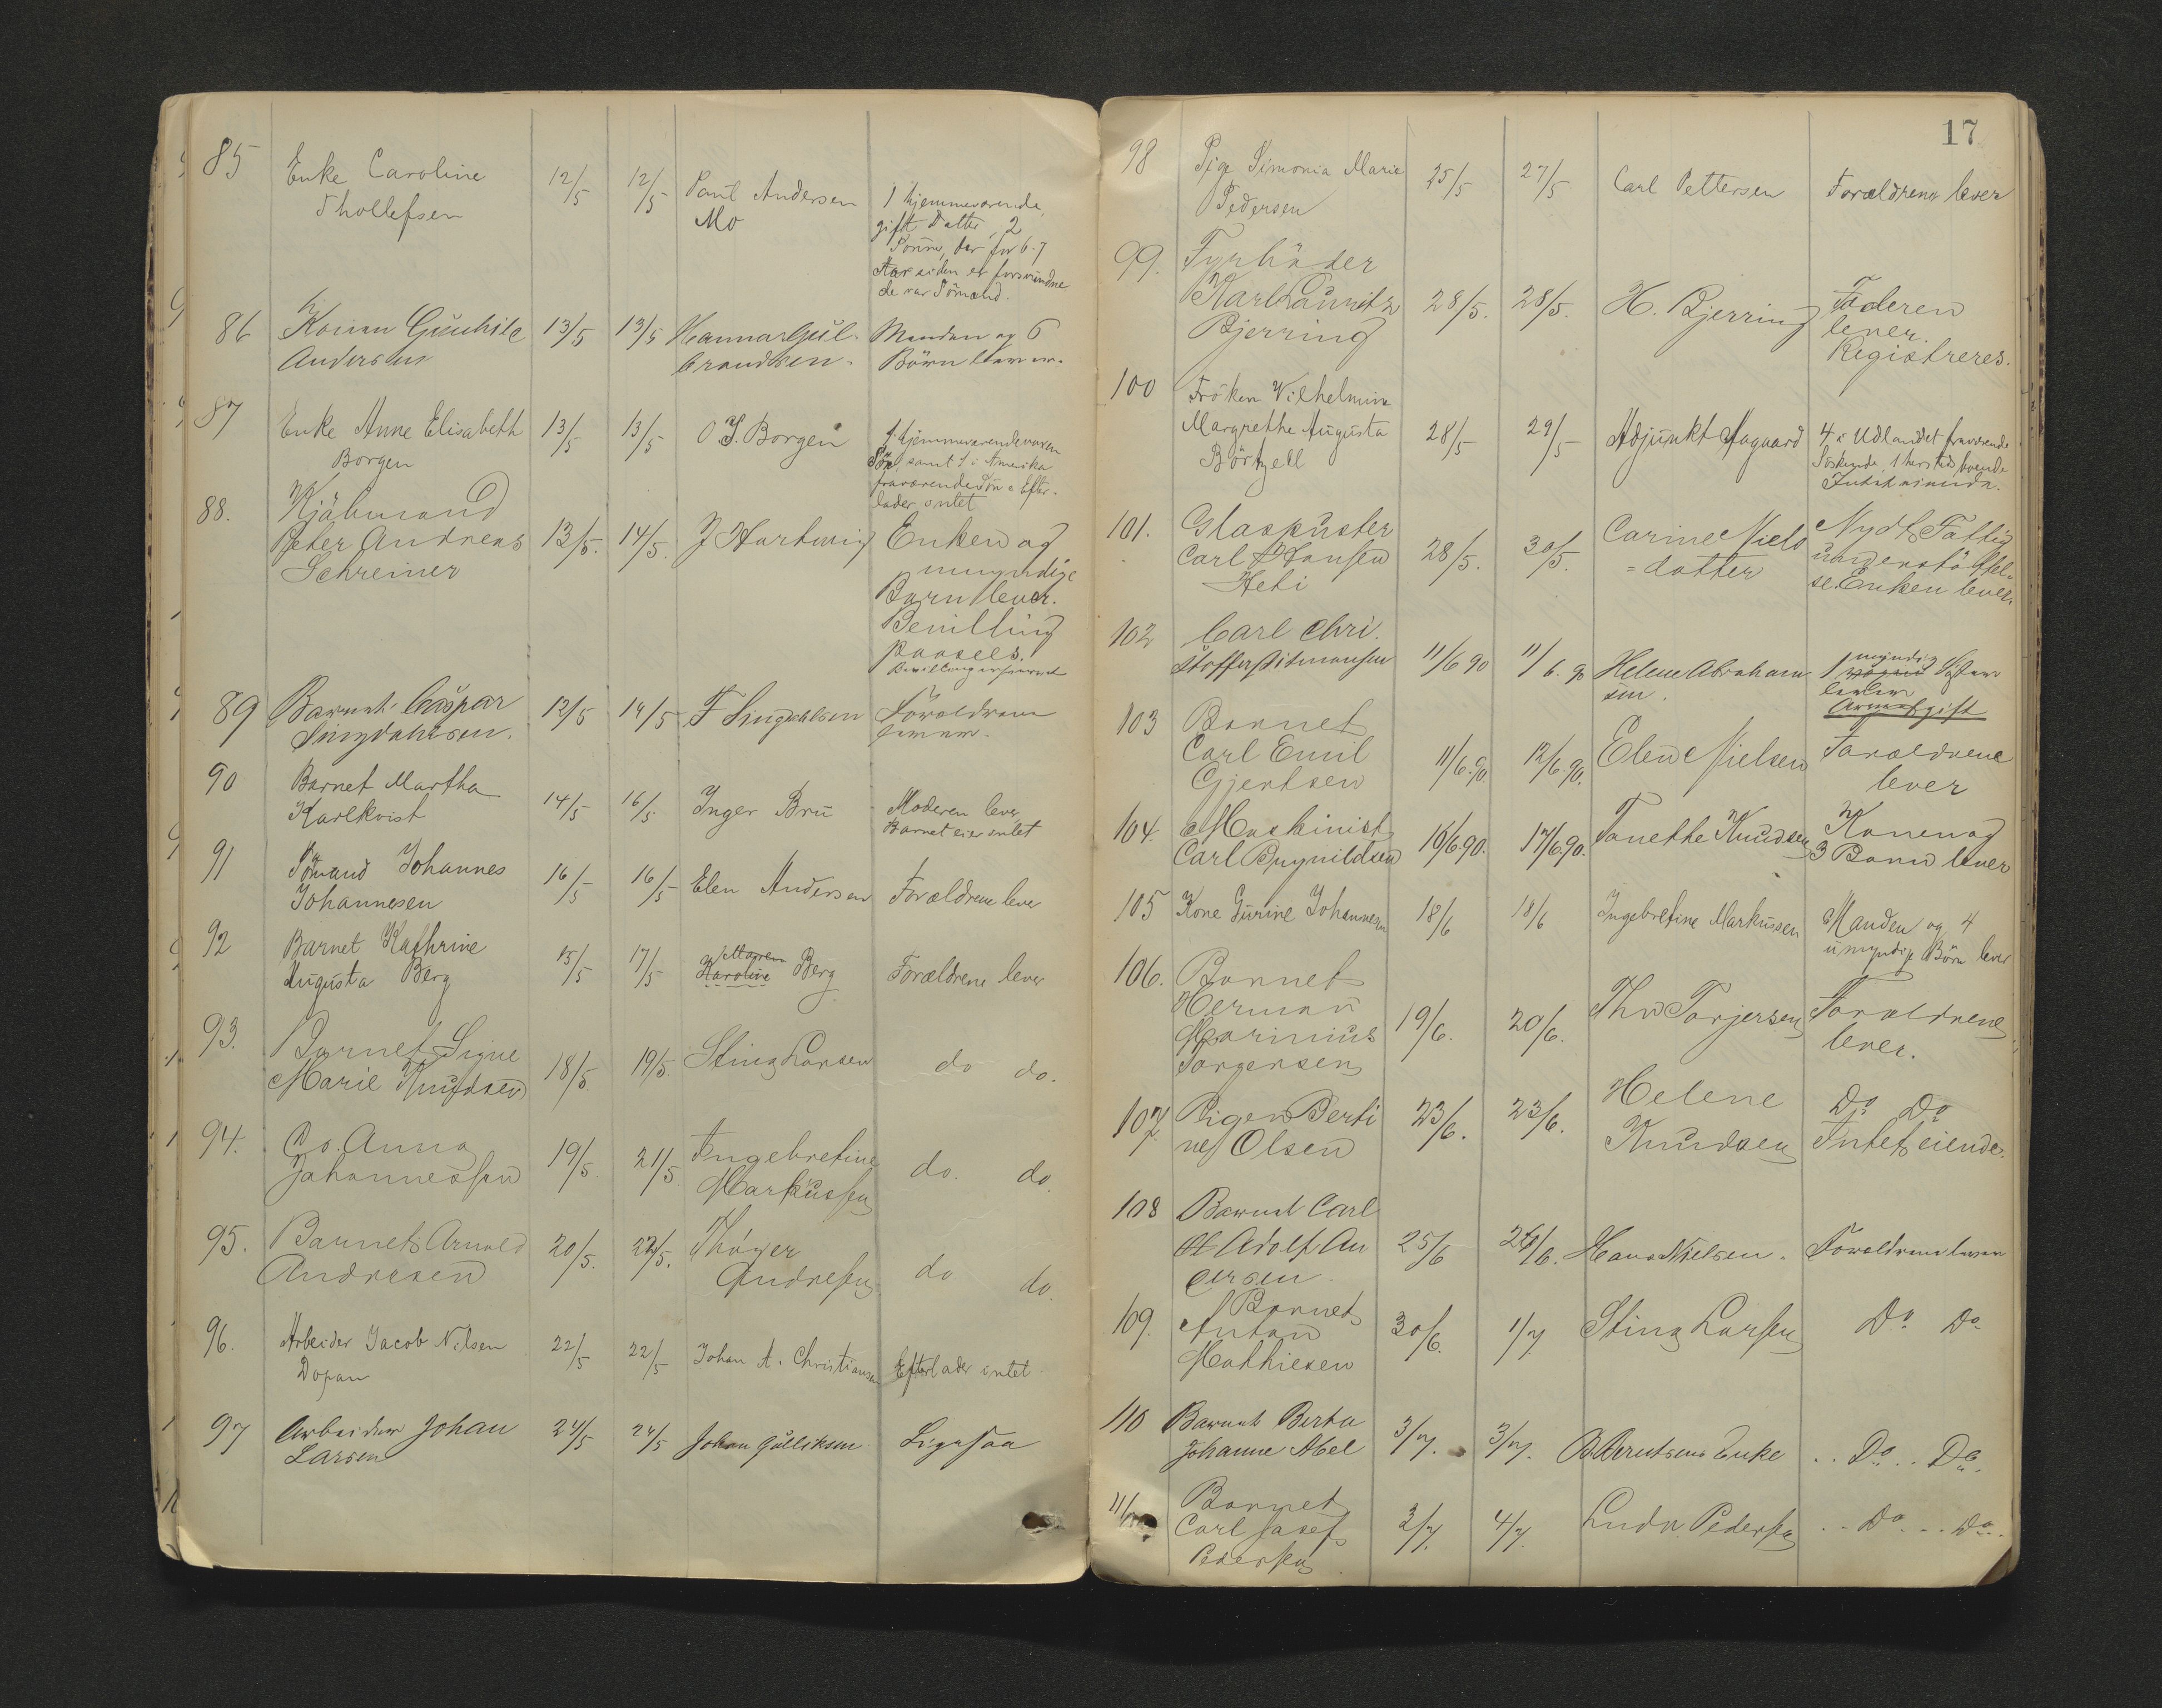 85 Enke Caroline Thollefsen 12/5 12/5 Paul Andersen Mo 1 hjemmeværende
gift Datter, 2
Sönner, der for 6-7
Aar siden er forsvundne
de var Sömænd.
86 Konen Gunhild Andersen 13/5 13/5 Hanna Gulbrandsen. Manden og 6
Börn lever.
87 Enke Anne Elisabeth
Borgen 13/5 13/5 O. J. Borgen 1 hjemmeværende voxen
Sön, samt 1 i Amerika
fraværende Sön. Efter-
lader intet
88. Kjöbmand
Peter Andreas
Schreiner 13/5. 14/5. J Hartwig Enken og
umyndige
Börn lever.
Bevilling
paasees.
89 Barnet Caspar
Singdahlsen. 12/5 14/5 F Singdahlsen Forældrene
90 Barnet Martha
Karlkvist 14/5 16/5. Inger Bru Moderen lever
Barnet eier intet
91 Sömand Johannes
Johannesen 16/5 16/5 Elen Andersen Forældrene lever
92 Barnet Kathrine
Augusta Berg 15/5 17/5 Maren
Karoline Berg Forældrene lever
93. Barnet Signe
Marie Knudsen 18/5 19/5. Stina Larsen do do.
94. Do. Anna
Johannessen 19/5. 21/5. Ingebretine
Markussen do. do.
95. Barnet Arnold
Andresen 20/5. 22/5. Thöger
Andresen do do.
96. Arbeider Jacob Nilsen
Dopan 22/5 22/5 Johan A. Christiansen Efterlader intet
97 Arbeider Johan
Larsen 24/5 24/5 Johan Gulliksen Ligesaa
17
98 Pige Simonia Marie
Pedersen 25/5 27/5 Carl Pettersen Forældrene lever
99. Fyrböder
Karl Lauritz
Bjerring 28/5. 28/5. H. Bjerring Faderen
lever.
Registreres.
100 Fröken Vilhelmine
Margrethe Augusta
28/5 29/5 Adjunkt Aagaard 4 i Udlandet fraværende
Söskende, 1 hersteds boende
101. Glaspuster
Carl Hansen
Heti 28/5. 30/5. Carine Niels
=datter Nydt Fattig
understöttel-
se. Enken lever.
102 Carl Chri.
stoffer 11/6 90 11/6. 90 Helene Abraham
sen. 1 myndig Söster
lever
103 Barnet
Carl Emil
Gjertsen 11/6.90. 12/6.90. Elen Nielsen Forældrene
lever
104. Maskinist
Carl Brynildsen 16/6.90. 17/6.90. Tonette Knudsen Konen og
3 Börn lever
105 Kone Gurine Johannesen 18/6 18/6 Ingebretine Markussen Manden og 4
umyndige Börn lever
106. Barnet
Herman
Marinius
Torgersen 19/6. 20/6. Thv Torjersen Forældrene
lever.
107. Pigen Berti
ne Olsen 23/6. 23/6. Helene
Knudsen Do Do
Intet eiende.
108 Barnet Carl
Adolf An
dersen. 25/6 26/6. Hans Nielsen. Forældrene lever
109. Barnet
Anton
Mathiesen 30/6. 1/7 Stina Larsen Do Do
110 Barnet Berta
Johanne Abel 3/7. 3/7. B Berntsens Enke .. Do .. Do.
111 Barnet
Carl Josef
Pedersen 3/7. 4/7. Ludv. Pedersen .. Do .. Do.